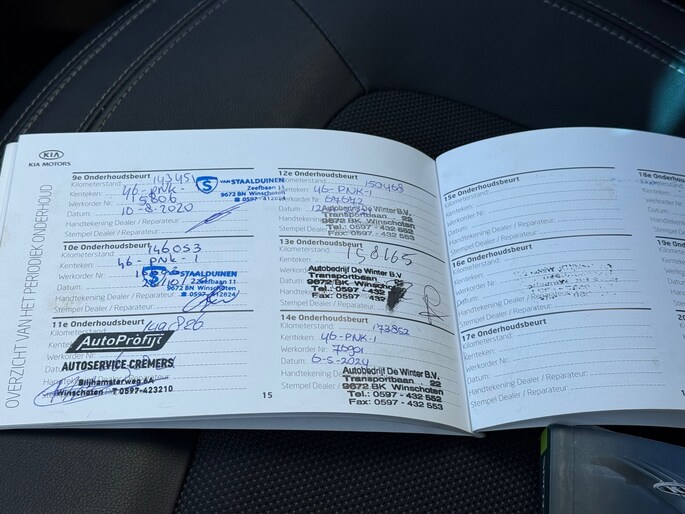 KIA
KIA MOTORS
OVERZICHT VAN HET PERIODIEK ONDERHOUD
9e Onderhoudsbeurt
Kilometerstand: 143451
Kenteken: 46-PNK-1
Werkorder Nr: 15806
Datum: 10-8-2020
Handtekening Dealer / Reparateur:
Stempel Dealer / Reparateur:
S VAN STAALDUINEN
Zeefbaan 11
9672 BN Winschoten
10e Onderhoudsbeurt
Kilometerstand: 146053
Kenteken: 46-PNK-1
Werkorder Nr:
Datum:
Handtekening Dealer / Reparateur:
Stempel Dealer / Reparateur:
STAALDUINEN
Zeefbaan 11
9672 BN Winschoten
11e Onderhoudsbeurt
Kilometerstand:
AutoProfijt
AUTOSERVICE CREMERS
Blijhamsterweg 6A
Winschoten T 0597-423210
12e Onderhoudsbeurt
Kilometerstand: 150468
Kenteken: 46-PNK-1
Werkorder Nr:
Datum:
Handtekening Dealer
Stempel Dealer / Reparateur:
Autobedrijf De Winter B.V.
Transportbaan 22
9672 BK Winschoten
Tel.: 0597 - 432 552
Fax: 0597 - 432 553
13e Onderhoudsbeurt
Kilometerstand: 158165
Autobedrijf De Winter B.V.
Transportbaan 22
9672 BK Winschoten
Tel.: 0597 - 432
Fax: 0597 - 432
Stempel Dealer / Reparateur:
14e Onderhoudsbeurt
Kilometerstand: 173852
Kenteken: 46-PNK-1
Werkorder Nr: 75901
Datum: 6-5-2024
Handtekening Dealer / Reparateur:
Stempel Dealer / Reparateur:
Autobedrijf De Winter B.V.
Transportbaan 22
9672 BK Winschoten
Tel.: 0597 - 432 552
Fax: 0597 - 432 553
15
15e Onderhoudsbeurt
Kilometerstand:
Kenteken:
Werkorder Nr:
Datum:
Handtekening Dealer / Reparateur:
Stempel Dealer / Reparateur:
16e Onderhoudsbeurt
Kilometerstand:
Kenteken:
Werkorder Nr:
Datum:
Handtekening Dealer / Reparateur:
Stempel Dealer / Reparateur:
17e Onderhoudsbeurt
Kilometerstand:
Kenteken:
Werkorder Nr:
Datum:
Handtekening Dealer / Reparateur:
Stempel Dealer / Reparateur:
18e Onderhoudsbeurt
Kilometerstand:
Kenteken:
Werkorder
Datum:
Handtek
Stempel
19e On